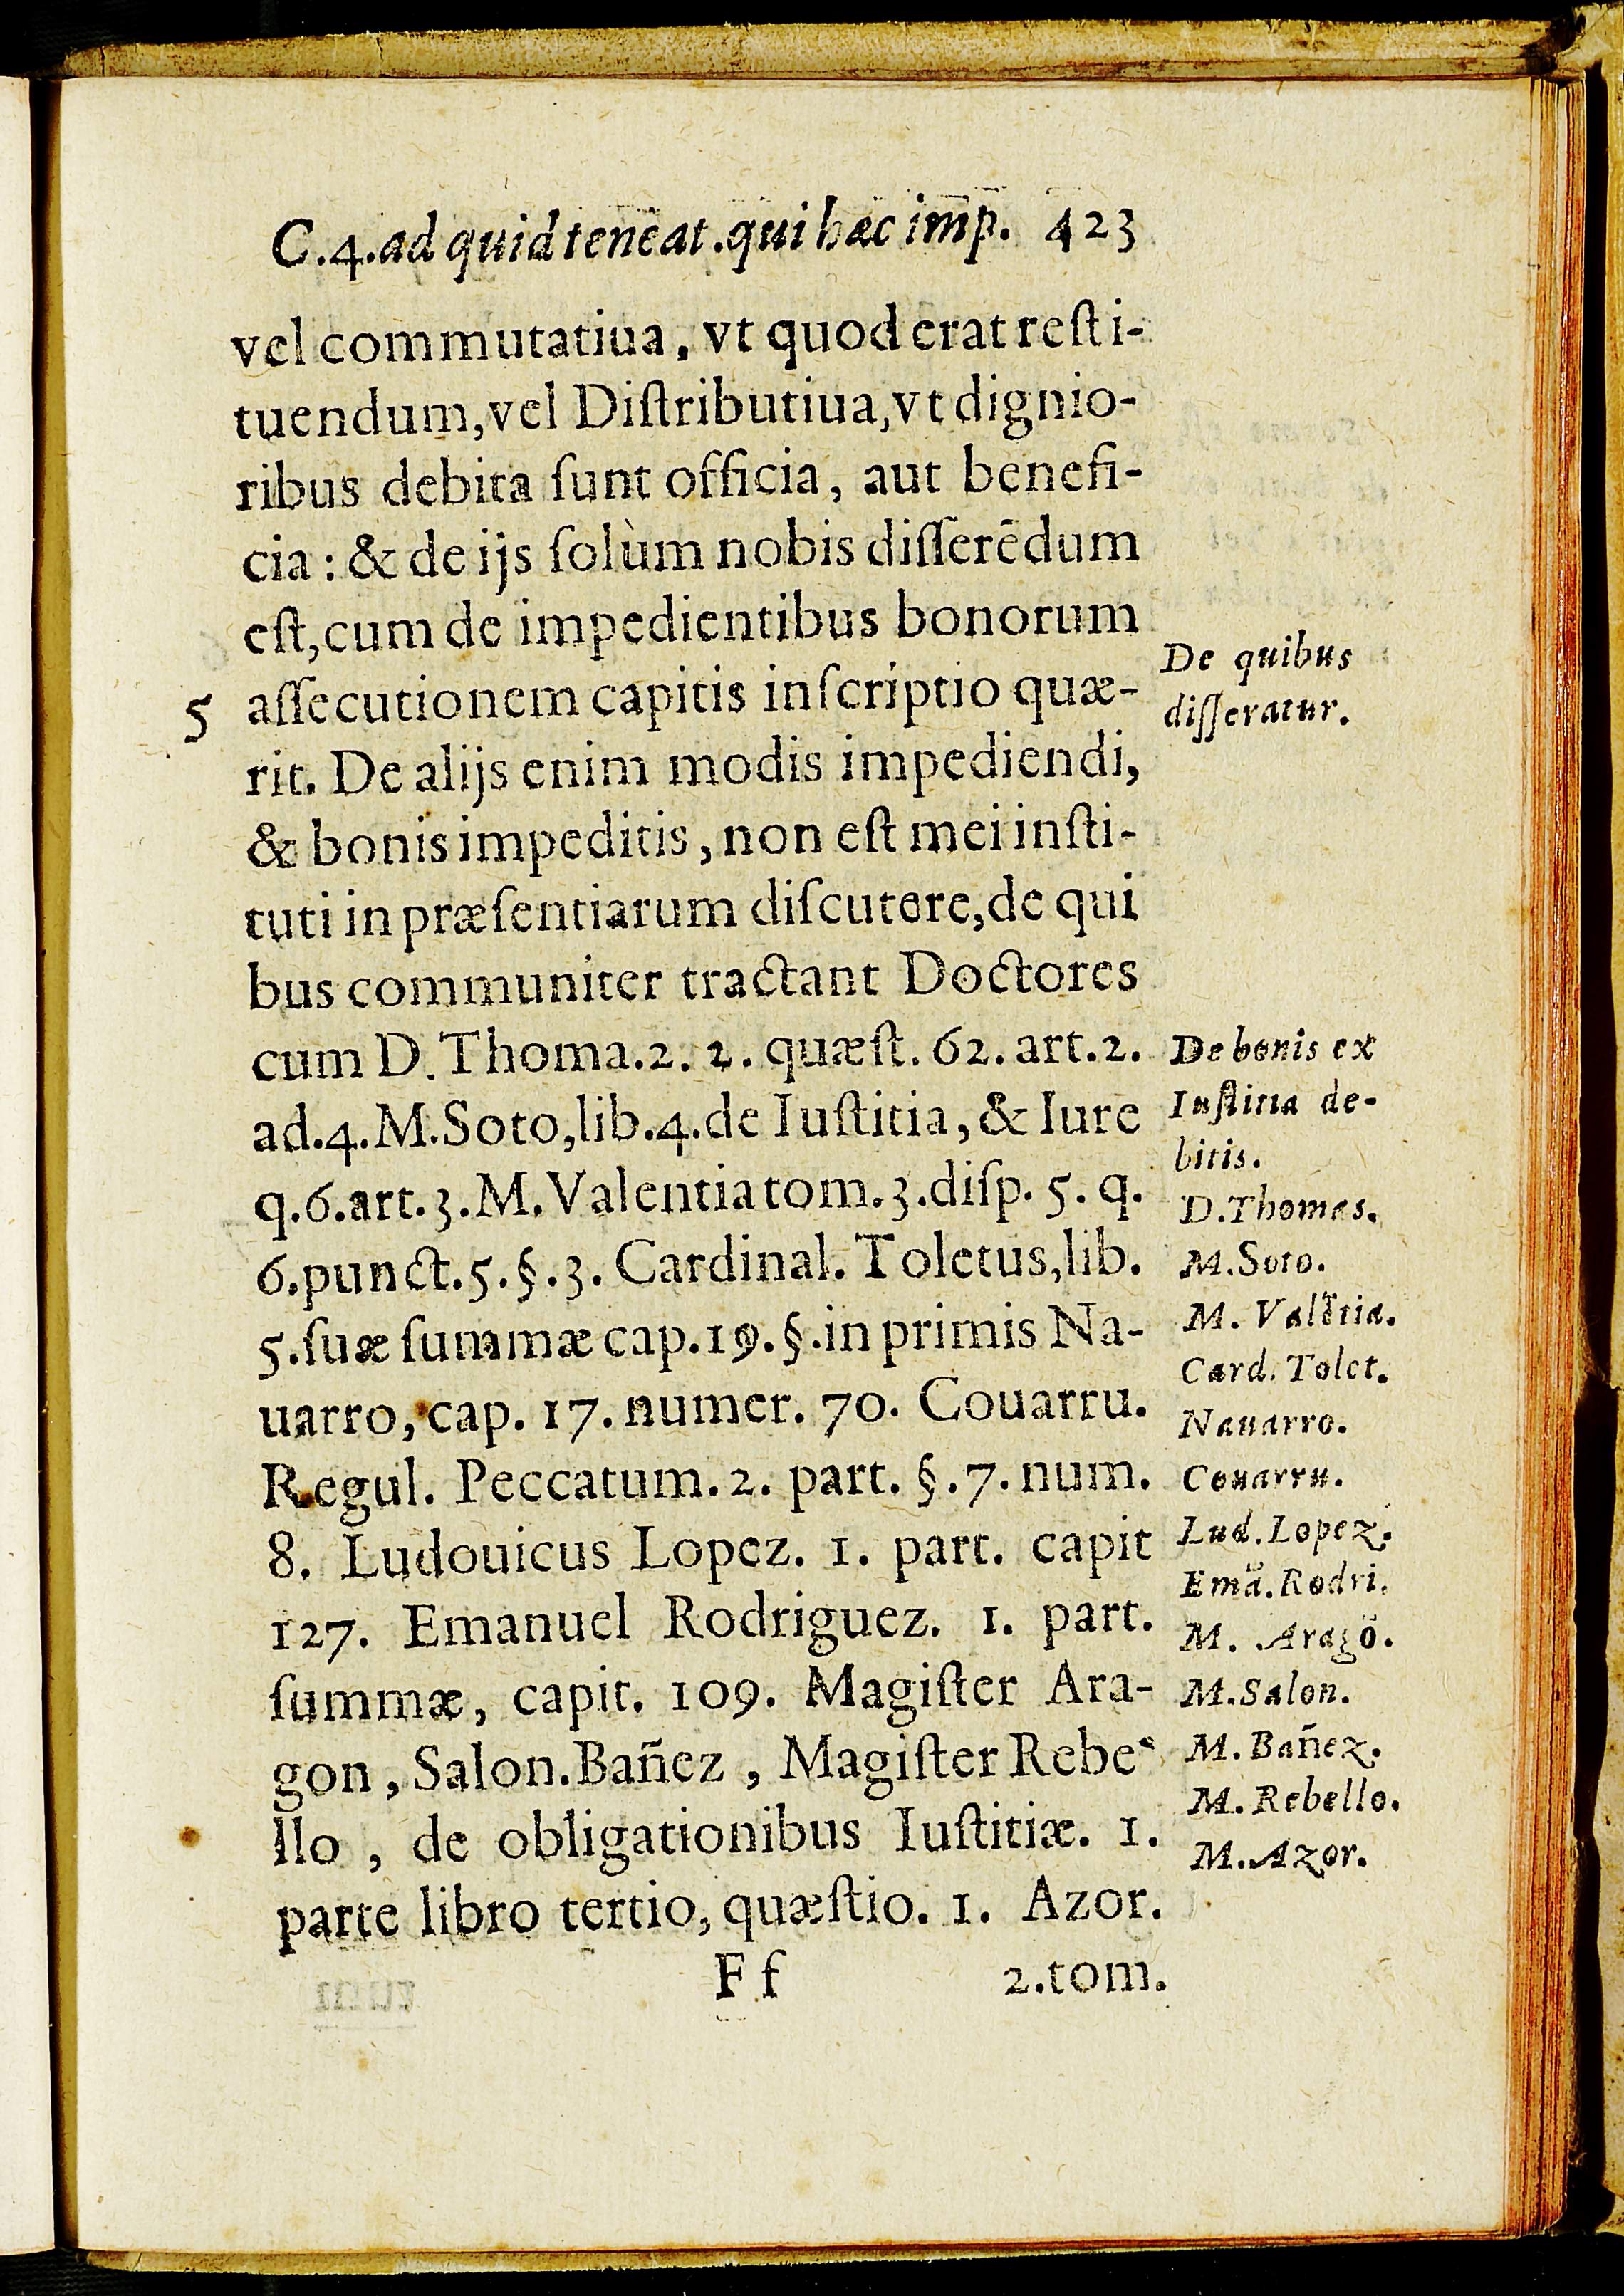 C.4.ad quid teneat.qui hæc imp. 423
vel commutatiua, vt quod erat reſti-
tuendum,vel Diſtributiua,vt dignio-
ribus debita ſunt officia, aut benefi-
cia : & de ijs ſolùm nobis diſſerēdum
eſt,cum de impedientibus bonorum
5 aſſecutionem capitis inſcriptio quæ-
rit. De alijs enim modis impediendi,
& bonis impeditis, non eſt mei inſti-
tuti in præſentiarum diſcutere,de qui
bus communiter tractant Doctores
cum D. Thoma.2. 2. quæſt. 62. art.2.
ad.4.M.Soto,lib.4.de Iuſtitia, & Iure
q.6.art.3.M.Valentia tom.3.diſp. 5. q.
6.punct.5.§.3. Cardinal. Toletus,lib.
5.ſuæ ſummæ cap.19.§.in primis Na-
uarro, cap. 17. numer. 70. Couarru.
Regul. Peccatum. 2. part. §.7. num.
8. Ludouicus Lopez. 1. part. capit
127. Emanuel Rodriguez. 1. part.
ſummæ, capit. 109. Magiſter Ara-
gon, Salon.Bañez , Magiſter Rebe-
llo , de obligationibus Iuſtitiæ. 1.
parte libro tertio, quæſtio. 1. Azor.
F f 2.tom.
De quibus
diſſeratur.
De bonis ex
Iuſtitia de-
bitis.
D.Thomas.
M.Soto.
M. Valētia.
Card. Tolet.
Nauarro.
Couarru.
Lud.Lopez.
Emā.Rodri.
M. Aragō.
M.Salon.
M.Bañez.
M.Rebello.
M.Azor.